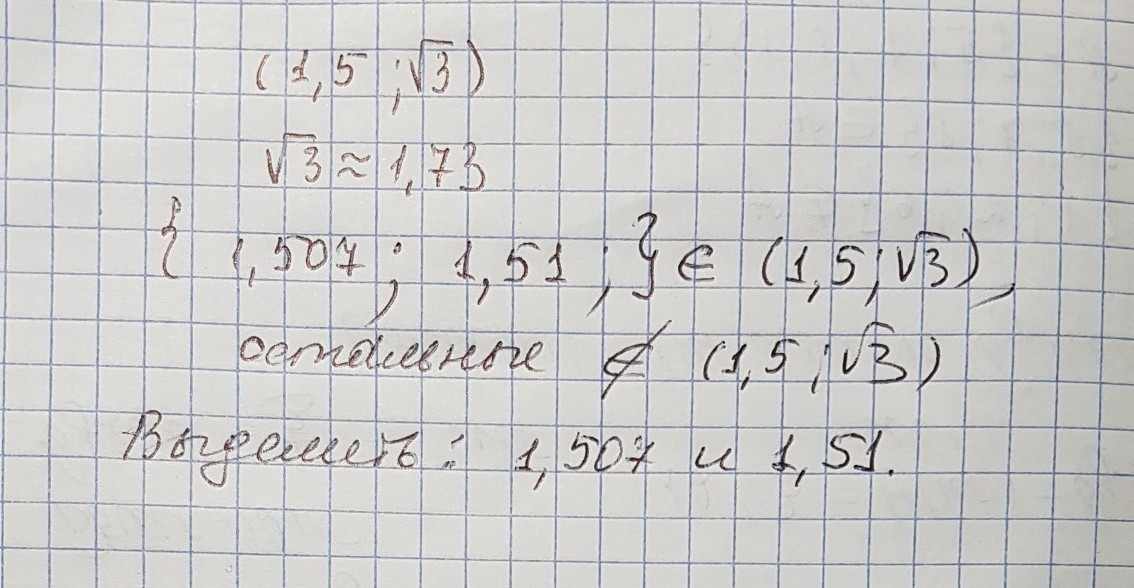 (1,5 ; √3)
√3 ≈ 1,73
{ 1,507 ; 1,51 ; } ∈ (1,5 ; √3) ,
остальные ∉ (1,5 ; √3)
Выделить : 1,507 и 1,51.